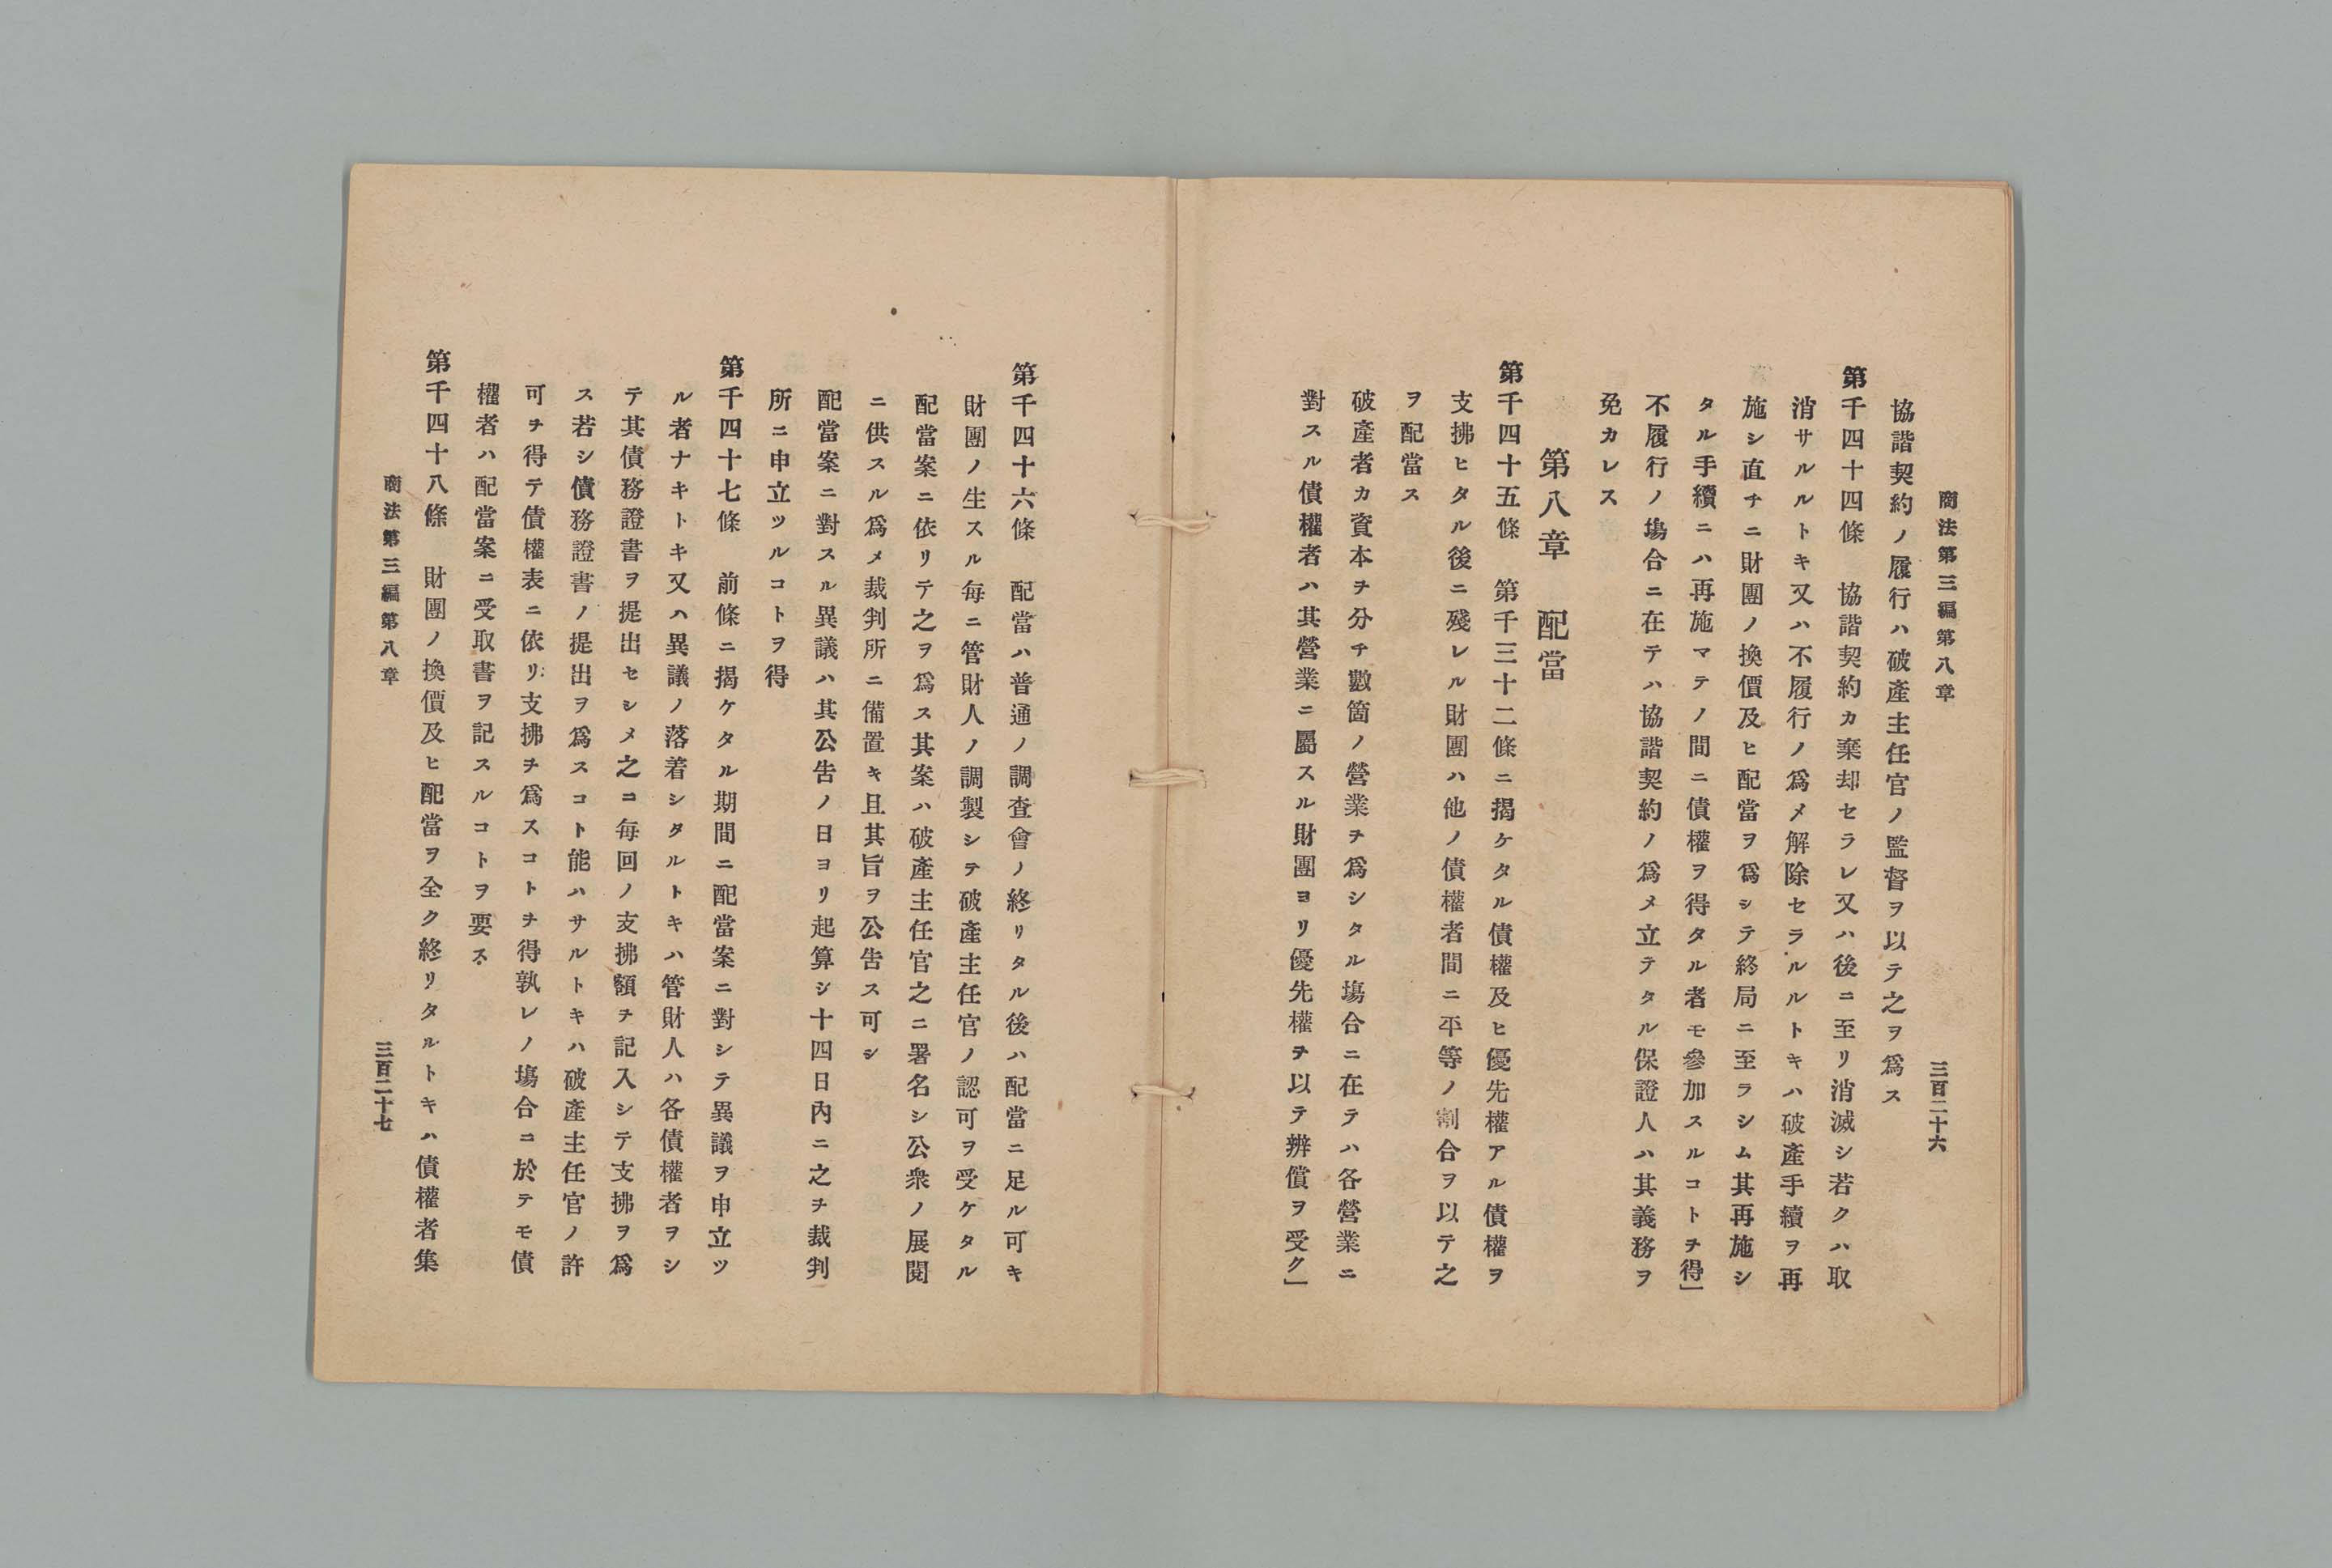 商法第三編第八章　三百二十六
協諧契約ノ履行ハ破產主任官ノ監督ヲ以テ之ヲ爲ス
第千四十四條　協諧契約カ棄却セラレ又ハ後ニ至リ消滅シ若クハ取
消サルルトキ又ハ不履行ノ爲メ解除セラルルトキハ破產手續ヲ再
施シ直チニ財團ノ換價及ヒ配當ヲ爲シテ終局ニ至ラシム其再施シ
タル手續ニハ再施マテノ間ニ債權ヲ得タル者モ參加スルコトヲ得」
不履行ノ塲合ニ在テハ協諧契約ノ爲メ立テタル保證人ハ其義務ヲ
免カレス
第八章　配當
第千四十五條　第千三十二條ニ揭ケタル債權及ヒ優先權アル債權ヲ
支拂ヒタル後ニ殘レル財團ハ他ノ債權者間ニ平等ノ割合ヲ以テ之
ヲ配當ス
破產者カ資本ヲ分チ數箇ノ營業ヲ爲シタル塲合ニ在テハ各營業ニ
對スル債權者ハ其營業ニ屬スル財團ヨリ優先權ヲ以テ辨償ヲ受ク」
第千四十六條　配當ハ普通ノ調査會ノ終リタル後ハ配當ニ足ル可キ
財團ノ生スル每ニ管財人ノ調製シテ破產主任官ノ認可ヲ受ケタル
配當案ニ依リテ之ヲ爲ス其案ハ破產主任官之ニ署名シ公衆ノ展閱
ニ供スル爲メ裁判所ニ備置キ且其旨ヲ公吿ス可シ
配當案ニ對スル異議ハ其公吿ノ日ヨリ起算シ十四日內ニ之ヲ裁判
所ニ申立ツルコトヲ得
第千四十七條　前條ニ揭ケタル期間ニ配當案ニ對シテ異議ヲ申立ツ
ル者ナキトキ又ハ異議ノ落着シタルトキハ管財人ハ各債權者ヲシ
テ其債務證書ヲ提出セシメ之ニ每回ノ支拂額ヲ記入シテ支拂ヲ爲
ス若シ債務證書ノ提出ヲ爲スコト能ハサルトキハ破產主任官ノ許
可ヲ得テ債權表ニ依リ支拂ヲ爲スコトヲ得孰レノ塲合ニ於テモ債
權者ハ配當案ニ受取書ヲ記スルコトヲ要ス
第千四十八條　財團ノ換價及ヒ配當ヲ全ク終リタルトキハ債權者集
商法第三編第八章　三百二十七